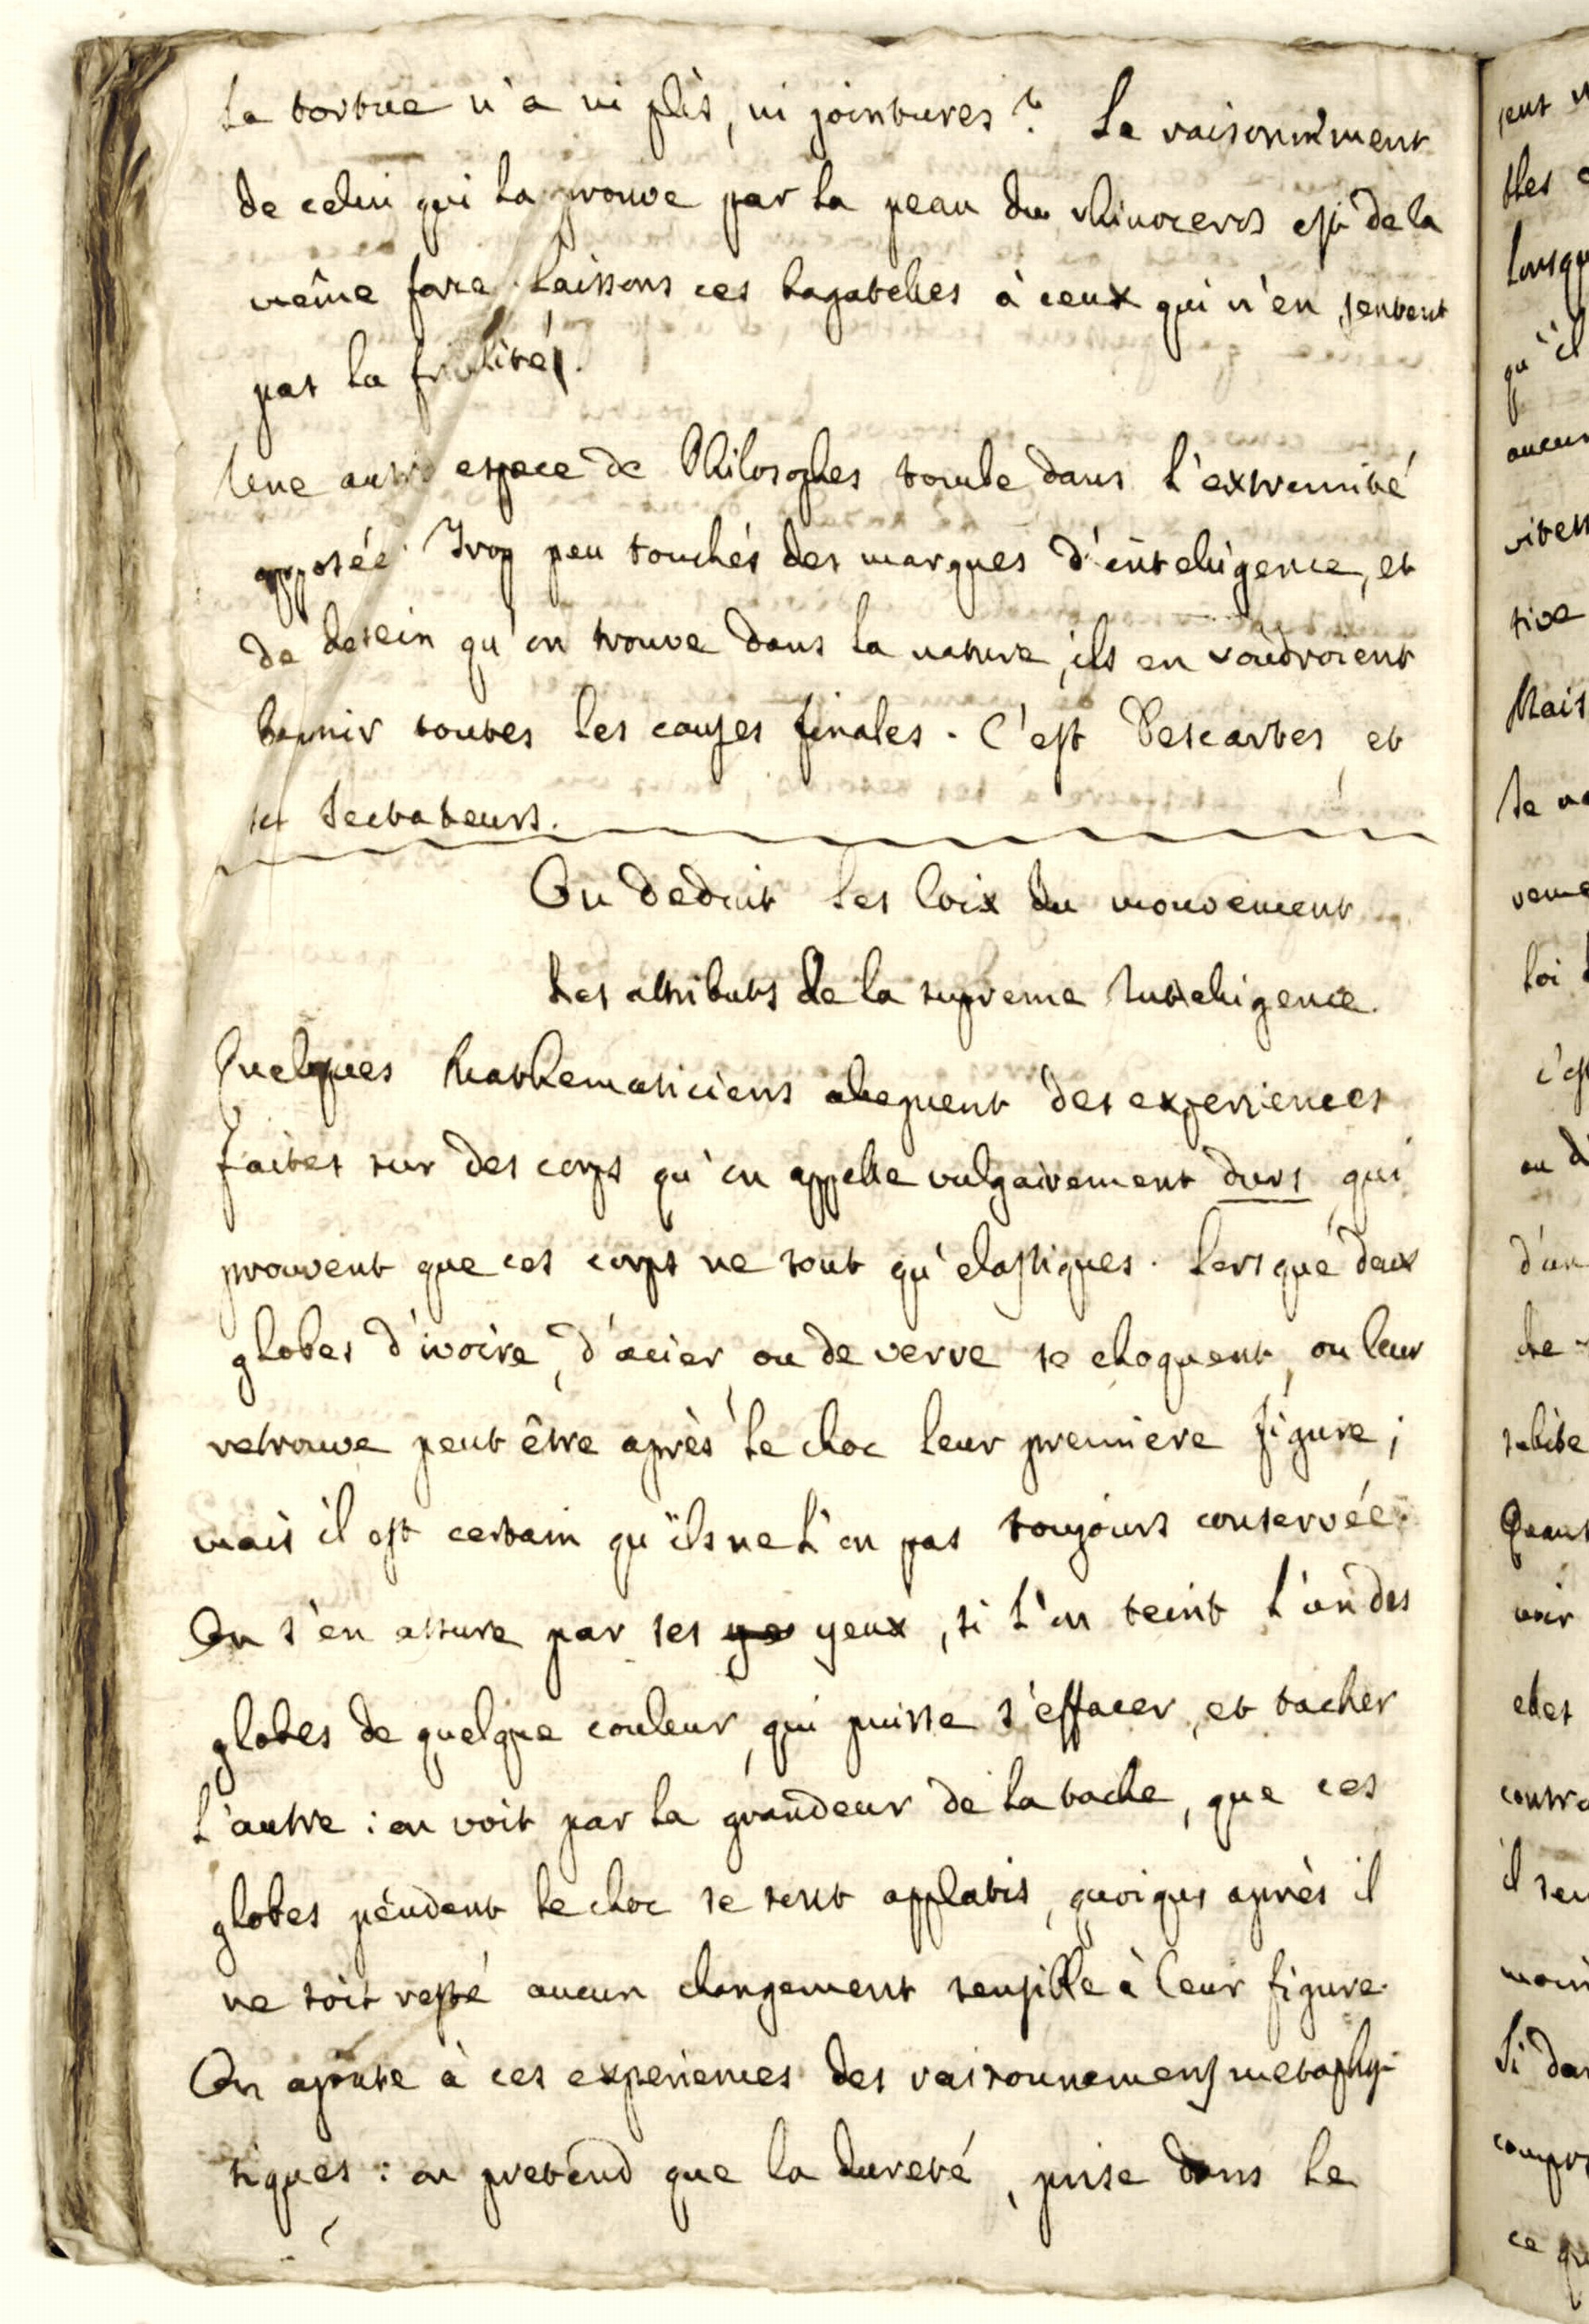 la tortue n'a ni plis, ni jointures? Le raisonnement
de celui qui la prouve par la peau du rhinoceros est de la
même force. Laissons ces bagatelles à ceux qui n'en sentent
pas la frivolité.
Une autre espece de Philosophes tombe dans l'extremité
opposée. Trop peu touchés des marques d'intelligence, et
de desein qu'on trouve dans la nature, ils en voudroient
bannir toutes les causes finales. C'est Descartes, et
ses Sectateurs.
On deduit les loix du mouvement
des attributs de la supreme Intelligence.
Quelques Mathematiciens aleguent des experiences
faites sur des corps qu'on appelle vulgairement durs, qui
prouvent que ces corps ne sont qu'elastiques. Lorsque deux
globes d'ivoire, d'acier, ou de verre se choquent, on leur
retrouve peut être après le choc leur premiere figure;
mais il est certain qu'ils ne l'on pas toujours conservée.
On s'en assure par ses ye yeux, si l'on teint l'un des
globes de quelque couleur, qui puisse s'effacer, et tacher
l'autre: on voit par la grandeur de la tache, que ces
globes pendent le choc se sont applatis, quoique après il
ne soit resté aucun changement sensible à leur figure.
On ajoute à ces experiences des raisonnemens metaphy-
siques: on pretend que la dureté, prise dans le